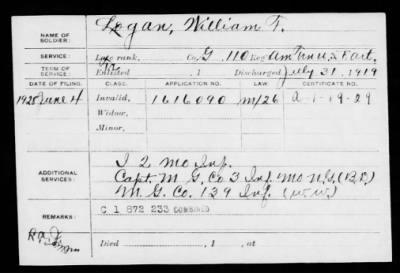 NAME OF SOLDIER: Logan, William T.
SERVICE: Late rank, Co. G, 110 Reg Am Tn U.S. Fort.
TERM OF SERVICE: Enlisted , 1 Discharged July 31, 1919
DATE OF FILING. CLASS. APPLICATION NO. LAW CERTIFICATE NO.
1925 June 4 Invalid, 1616090 m/26 A-1-19-29
Widow,
Minor,
ADDITIONAL SERVICES: I 2 Mo Inf.
Capt. M. G. Co 3 Inf. Mo N.G. (B.D.)
M. G. Co. 139 Inf. (W.W.)
REMARKS: C 1 872 233 COMBINED
Died , 1 , at